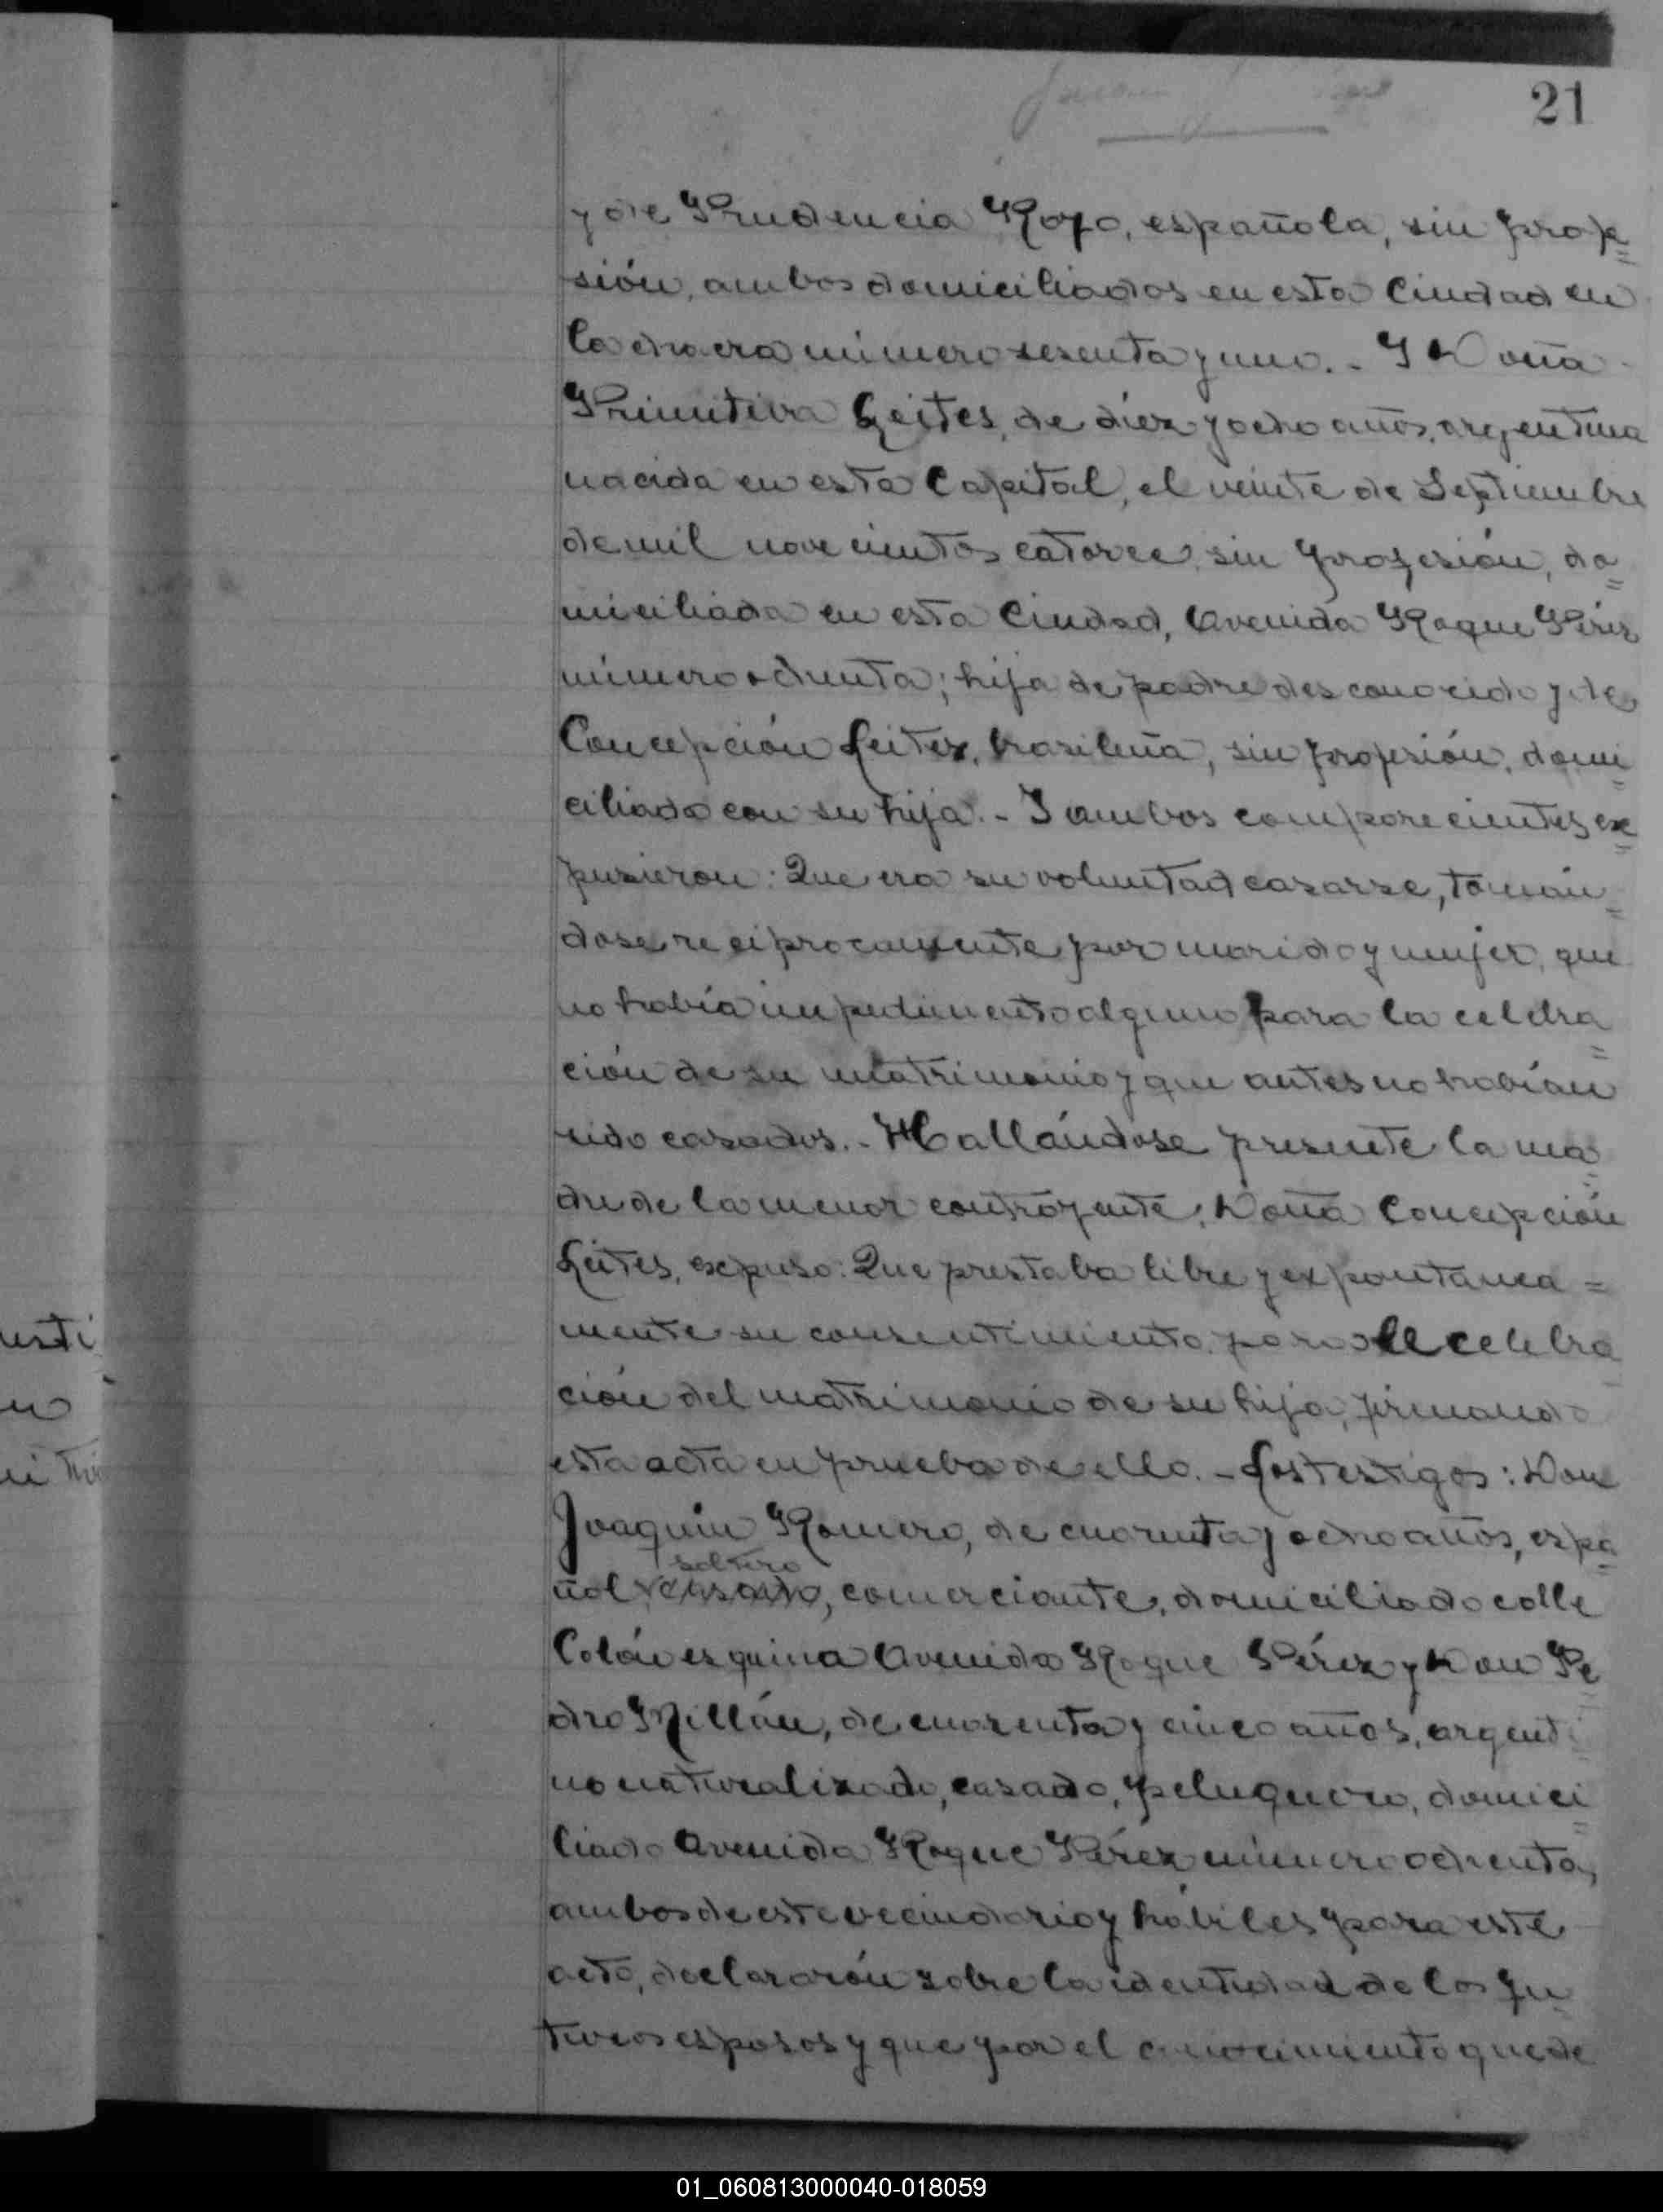 21
y de Prudencia Royo, española, sin profe=
sión, ambos domiciliados en esta Ciudad en
la chacra número sesenta y uno.- Y Doña
Primitiva Leites, de diez y ocho años, argentina
nacida en esta Capital, el veinte de Septiembre
de mil novecientos catorce, sin profesión, do=
miciliada en esta Ciudad, Avenida Roque Pérez
número ochenta; hija de padre desconocido y de
Concepción Leites, brasileña, sin profesión, domi=
ciliada con su hija.- Y ambos comparecientes ex=
pusieron: Que era su voluntad casarse, tomán=
dose reciprocamente por marido y mujer, que
no había impedimento alguno para la celebra=
ción de su matrimonio y que antes no habían
sido casados.- Hallándose presente la ma=
dre de la menor contrayente, Doña Concepción
Leites, expuso: Que prestaba libre y expontanea=
mente su consentimiento para la celebra
ción del matrimonio de su hija, firmando
esta acta en prueba de ello.- Los testigos: Don
Joaquín Romero, de cuarenta y ocho años, espa=
soltero
ñol, comerciante, domiciliado calle
Colón esquina Avenida Roque Pérez y Don Pe=
dro Millán, de cuarenta y cinco años, argenti
no naturalizado, casado, peluquero, domici=
liado Avenida Roque Pérez número ochenta,
ambos de este vecindario y hábiles para este
acto, declararón sobre la identidad de los fu=
turos esposos y que por el conocimiento que de
usti
01_060813000040-018059